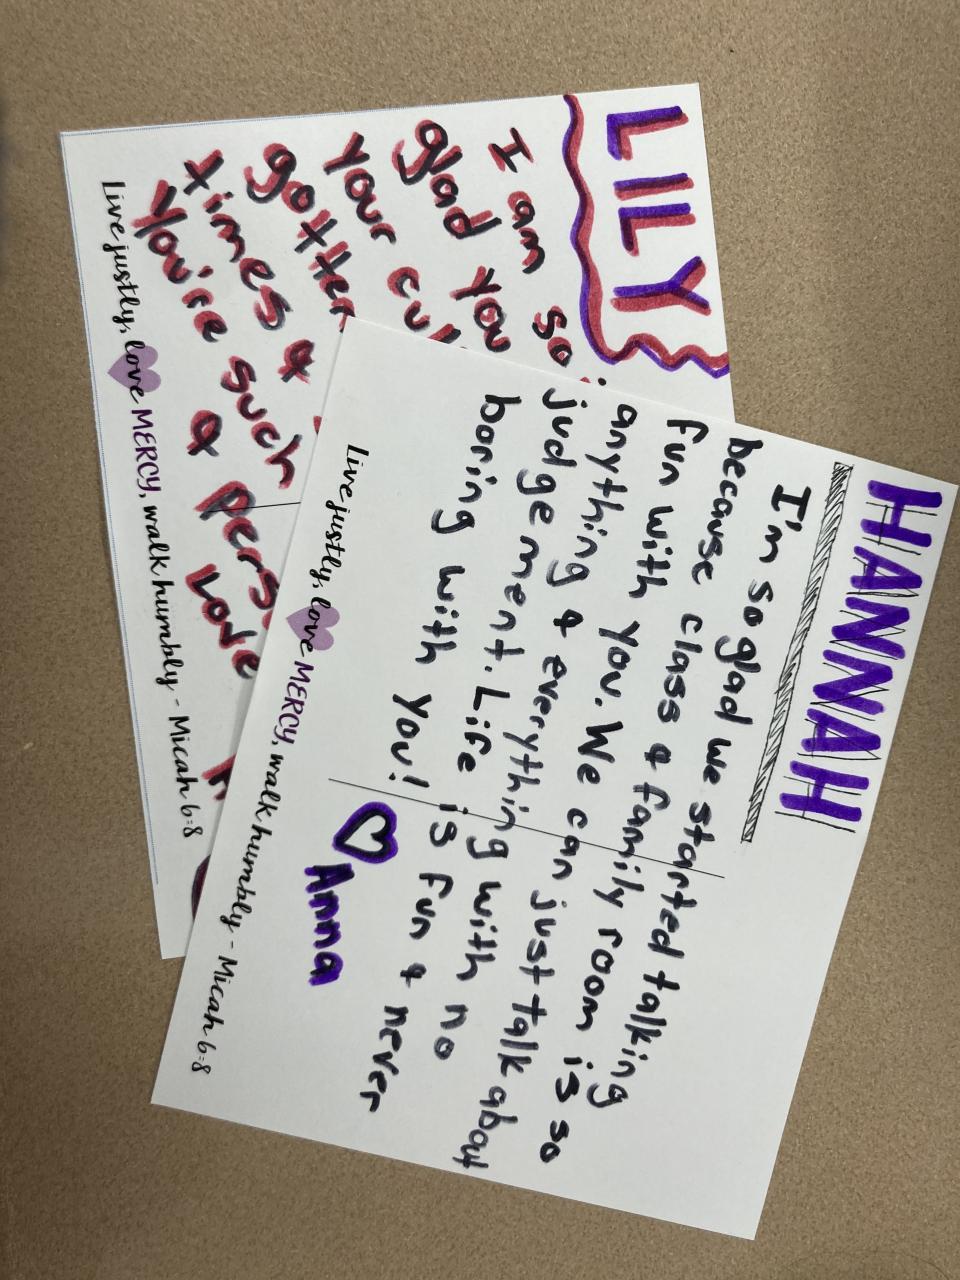 LILY
I am so
glad you
your
gotten
times &
you're such
a
Love
Live justly, love MERCY, walk humbly - Micah 6:8
HANNAH
I'm so glad we started talking
because class & family room is so
fun with you. We can just talk about
anything & everything with no
judgement. Life is fun & never
boring with you!
♡ Anna
Live justly, love MERCY, walk humbly - Micah 6:8